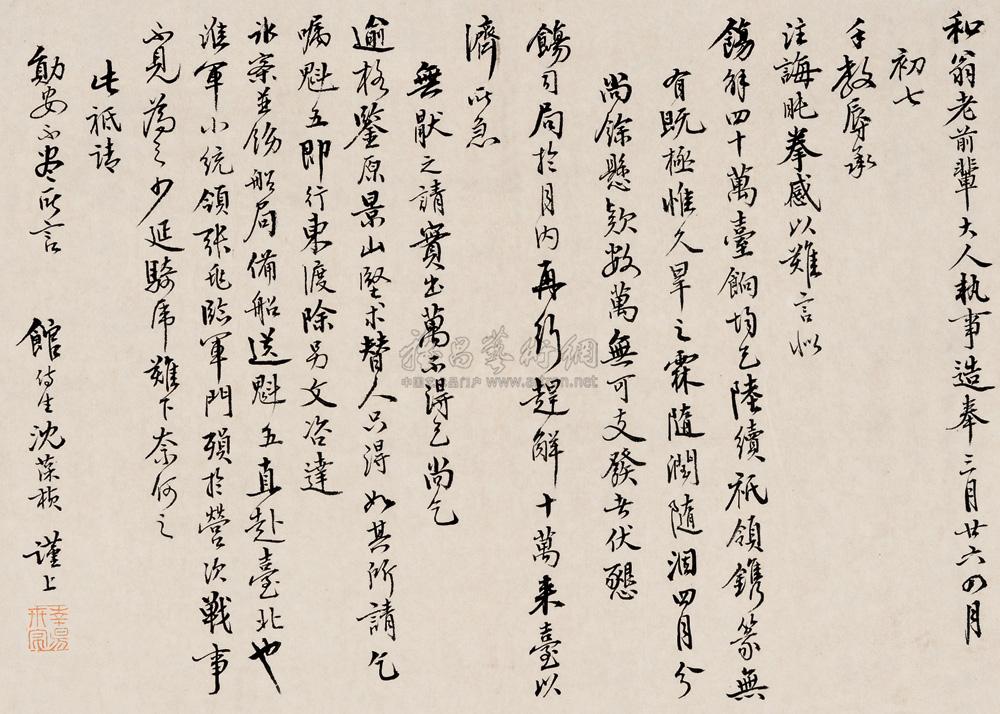 和翁老前輩大人執事造奉三月廿六四月
初七
手教辱承
注誨肫拳感以難言似
餉解四十萬臺餉均已陸續祇領鐫篆無
有既極惟久旱之霖隨潤隨涸四月分
尚餘懸款數萬無可支發者伏懇
飭司局於月內再行趕解十萬來臺以
濟所急
無厭之請實出萬不得已尚乞
逾格鑒原景山堅求替人只得如其所請乞
囑魁五即行東渡除另文咨達
冰案並飭船局備船送魁五直赴臺北也
淮軍小統領張兆臨軍門殞於營次戰事
不見為之少延騎虎難下奈何之
此祗請
勛安不盡所言
館侍生沈葆楨 謹上